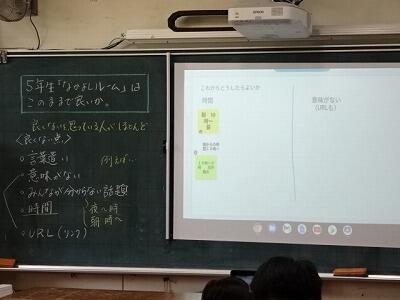 5年生「なかよしルーム」は
このままで良いか。
良くないと思っている人がほとんど
<良くない点>
○言葉遣い 例えば…
○意味がない
○みんなが分からない話題
○時間 夜〜時
朝 時〜
○URL(リンク)
EPSON
これからどうしたらよいか
時間
意味がない
(URLも)